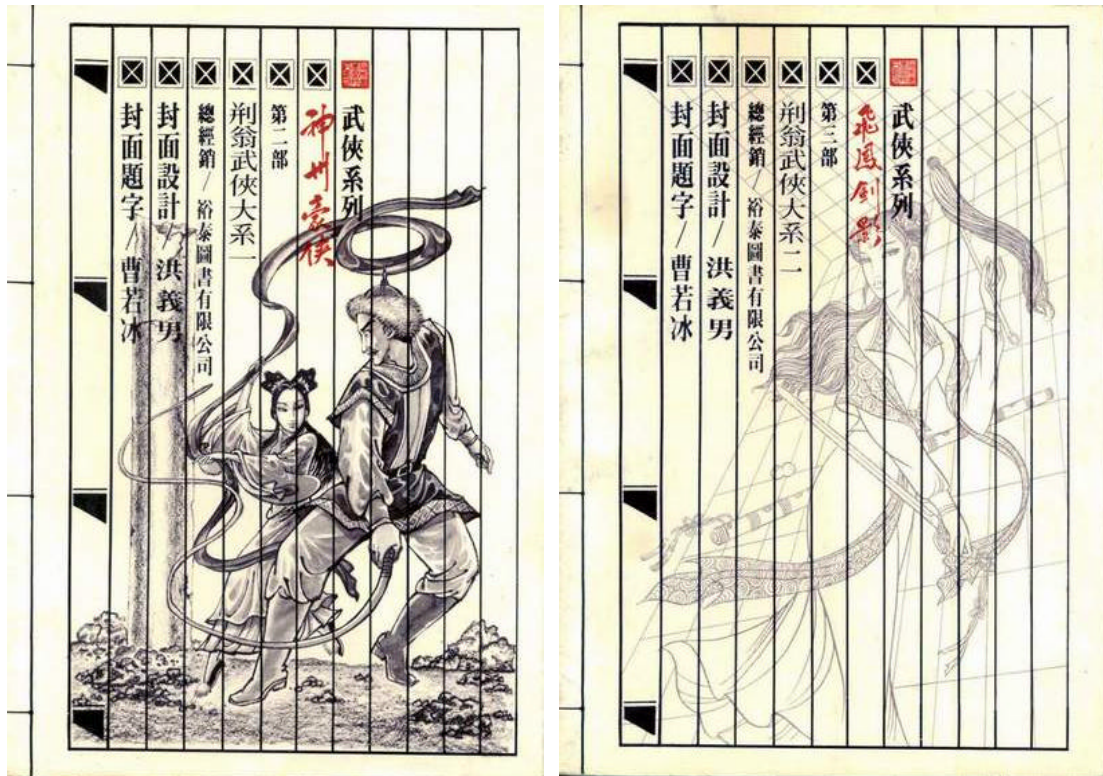 武俠系列
神州豪俠
第二部
荊翁武俠大系一
總經銷/裕泰圖書有限公司
封面設計/洪義男
封面題字/曹若冰
武俠系列
飛鳳劍影
第三部
荊翁武俠大系二
總經銷/裕泰圖書有限公司
封面設計/洪義男
封面題字/曹若冰